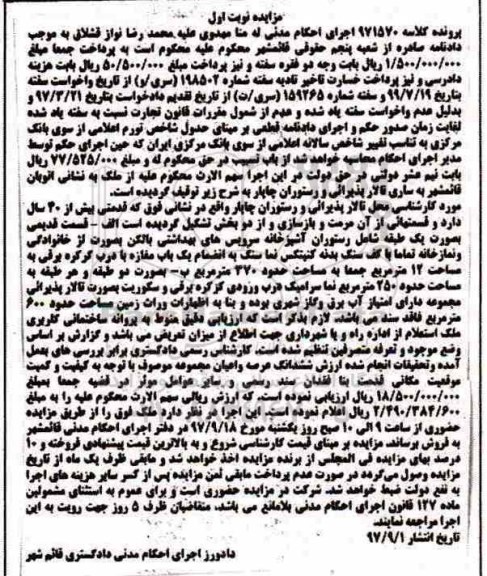 مزایده نوبت اول
پرونده کلاسه ۹۷۱۵۷۰ اجرای احکام مدنی له منا مهدوی علیه محمد رضا نواز قشلاق به موجب
دادنامه صادره از شعبه پنجم حقوقی قائمشهر محکوم علیه محکوم است به پرداخت جمعا مبلغ
۱/۵۰۰/۰۰۰/۰۰۰ ریال بابت وجه دو فقره سفته و نیز پرداخت مبلغ ۵۰/۵۰۰/۰۰۰ ریال بابت هزینه
دادرسی و نیز پرداخت خسارت تاخیر تادیه سفته شماره ۱۹۸۵۰۲ (سری/و) از تاریخ واخواست سفته
بتاریخ ۹۹/۷/۱۹ و سفته شماره ۱۵۹۲۶۵ (سری/ت) از تاریخ تقدیم دادخواست بتاریخ ۹۷/۳/۲۱ و
بدلیل عدم واخواست سفته یاد شده و عدم از شمول مقررات قانون تجارت نسبت به سفته یاد شده
لغایت زمان صدور حکم و اجرای دادنامه قطعی بر مبنای جدول شاخص تورم اعلامی از سوی بانک
مرکزی به تناسب تغییر شاخص سالانه اعلامی از سوی بانک مرکزی ایران که حین اجرای حکم توسط
مدیر اجرای احکام محاسبه خواهد شد از باب تسبیب در حق محکوم له و مبلغ ۷۷/۵۲۵/۰۰۰ ریال
بابت نیم عشر دولتی در حق دولت در این اجرا سهم الارث محکوم علیه از ملک به نشانی اتوبان
قائمشهر به ساری تالار پذیرائی و رستوران چاپار به شرح زیر توقیف گردیده است.
مورد کارشناسی محل تالار پذیرائی و رستوران چاپار واقع در نشانی فوق که قدمتی بیش از ۴۰ سال
دارد و قسمتهائی از آن مرمت و بازسازی و از دو بخش تشکیل گردیده است الف - قسمت قدیمی
بصورت یک طبقه شامل رستوران آشپزخانه سرویس های بهداشتی بالکن بصورت از خانوادگی
ونمازخانه تماما با کف سنگ بدنه گنیتکس نما سنگ به انضمام یک باب مغازه با درب کرکره برقی به
مساحت ۱۲ مترمربع جمعا به مساحت حدود ۳۷۰ مترمربع ب- بصورت دو طبقه و هر طبقه به
مساحت حدود ۲۵۰ مترمربع نما سرامیک درب ورودی کرکره برقی و سکوریت بصورت تالار پذیرائی
مجموعه دارای امتیاز آب برق وگاز شهری بوده و بنا به اظهارات وراث زمین مساحت حدود ۶۰۰
مترمربع فاقد سند می باشد. لازم بذکر است که ارزیابی دقیق منوط به پروانه ساختمانی کاربری
ملک استعلام از اداره راه و یا شهرداری جهت اطلاع از میزان تعریض می باشد و گزارش بر اساس
وضع موجود و تعرفه متصرفین تنظیم شده است. کارشناس رسمی دادگستری برابر بررسی های بعمل
آمده وتحقیقات انجام شده ارزش ششدانگ عرصه واعیان مجموعه موصوف با توجه به کیفیت و کمیت
موقعیت مکانی قدمت بنا فقدان سند رسمی و سایر عوامل موثر در قضیه جمعا بمبلغ
۱۸/۵۰۰/۰۰۰/۰۰۰ ریال ارزیابی نموده است که ارزش ریالی سهم الارث محکوم علیه را به مبلغ
۲/۴۹۰/۳۸۴/۶۰۰ ریال اعلام نموده است که این اجرا در نظر دارد ملک فوق را از طریق مزایده
حضوری از ساعت ۹ الی ۱۰ صبح روز یکشنبه مورخ ۹۷/۹/۱۸ در دفتر اجرای احکام مدنی قائمشهر
به فروش برساند. مزایده بر مبنای قیمت کارشناسی شروع و به بالاترین قیمت پیشنهادی فروخته و ۱۰
درصد بهای مزایده فی المجلس از برنده مزایده اخذ خواهد شد و مابقی ظرف یک ماه از تاریخ
مزایده وصول می‌گردد در صورت عدم پرداخت مابقی ثمن مزایده پس از کسر سایر هزینه های اجرا
به نفع دولت ضبط خواهد شد. شرکت در مزایده حضوری است و برای عموم به استثنای مشمولین
ماده ۱۲۷ قانون اجرای احکام مدنی بلامانع می باشد، متقاضیان ظرف ۵ روز جهت رویت به این
اجرا مراجعه نمایند.
تاریخ انتشار ۹۷/۹/۱
دادورز اجرای احکام مدنی دادگستری قائم شهر